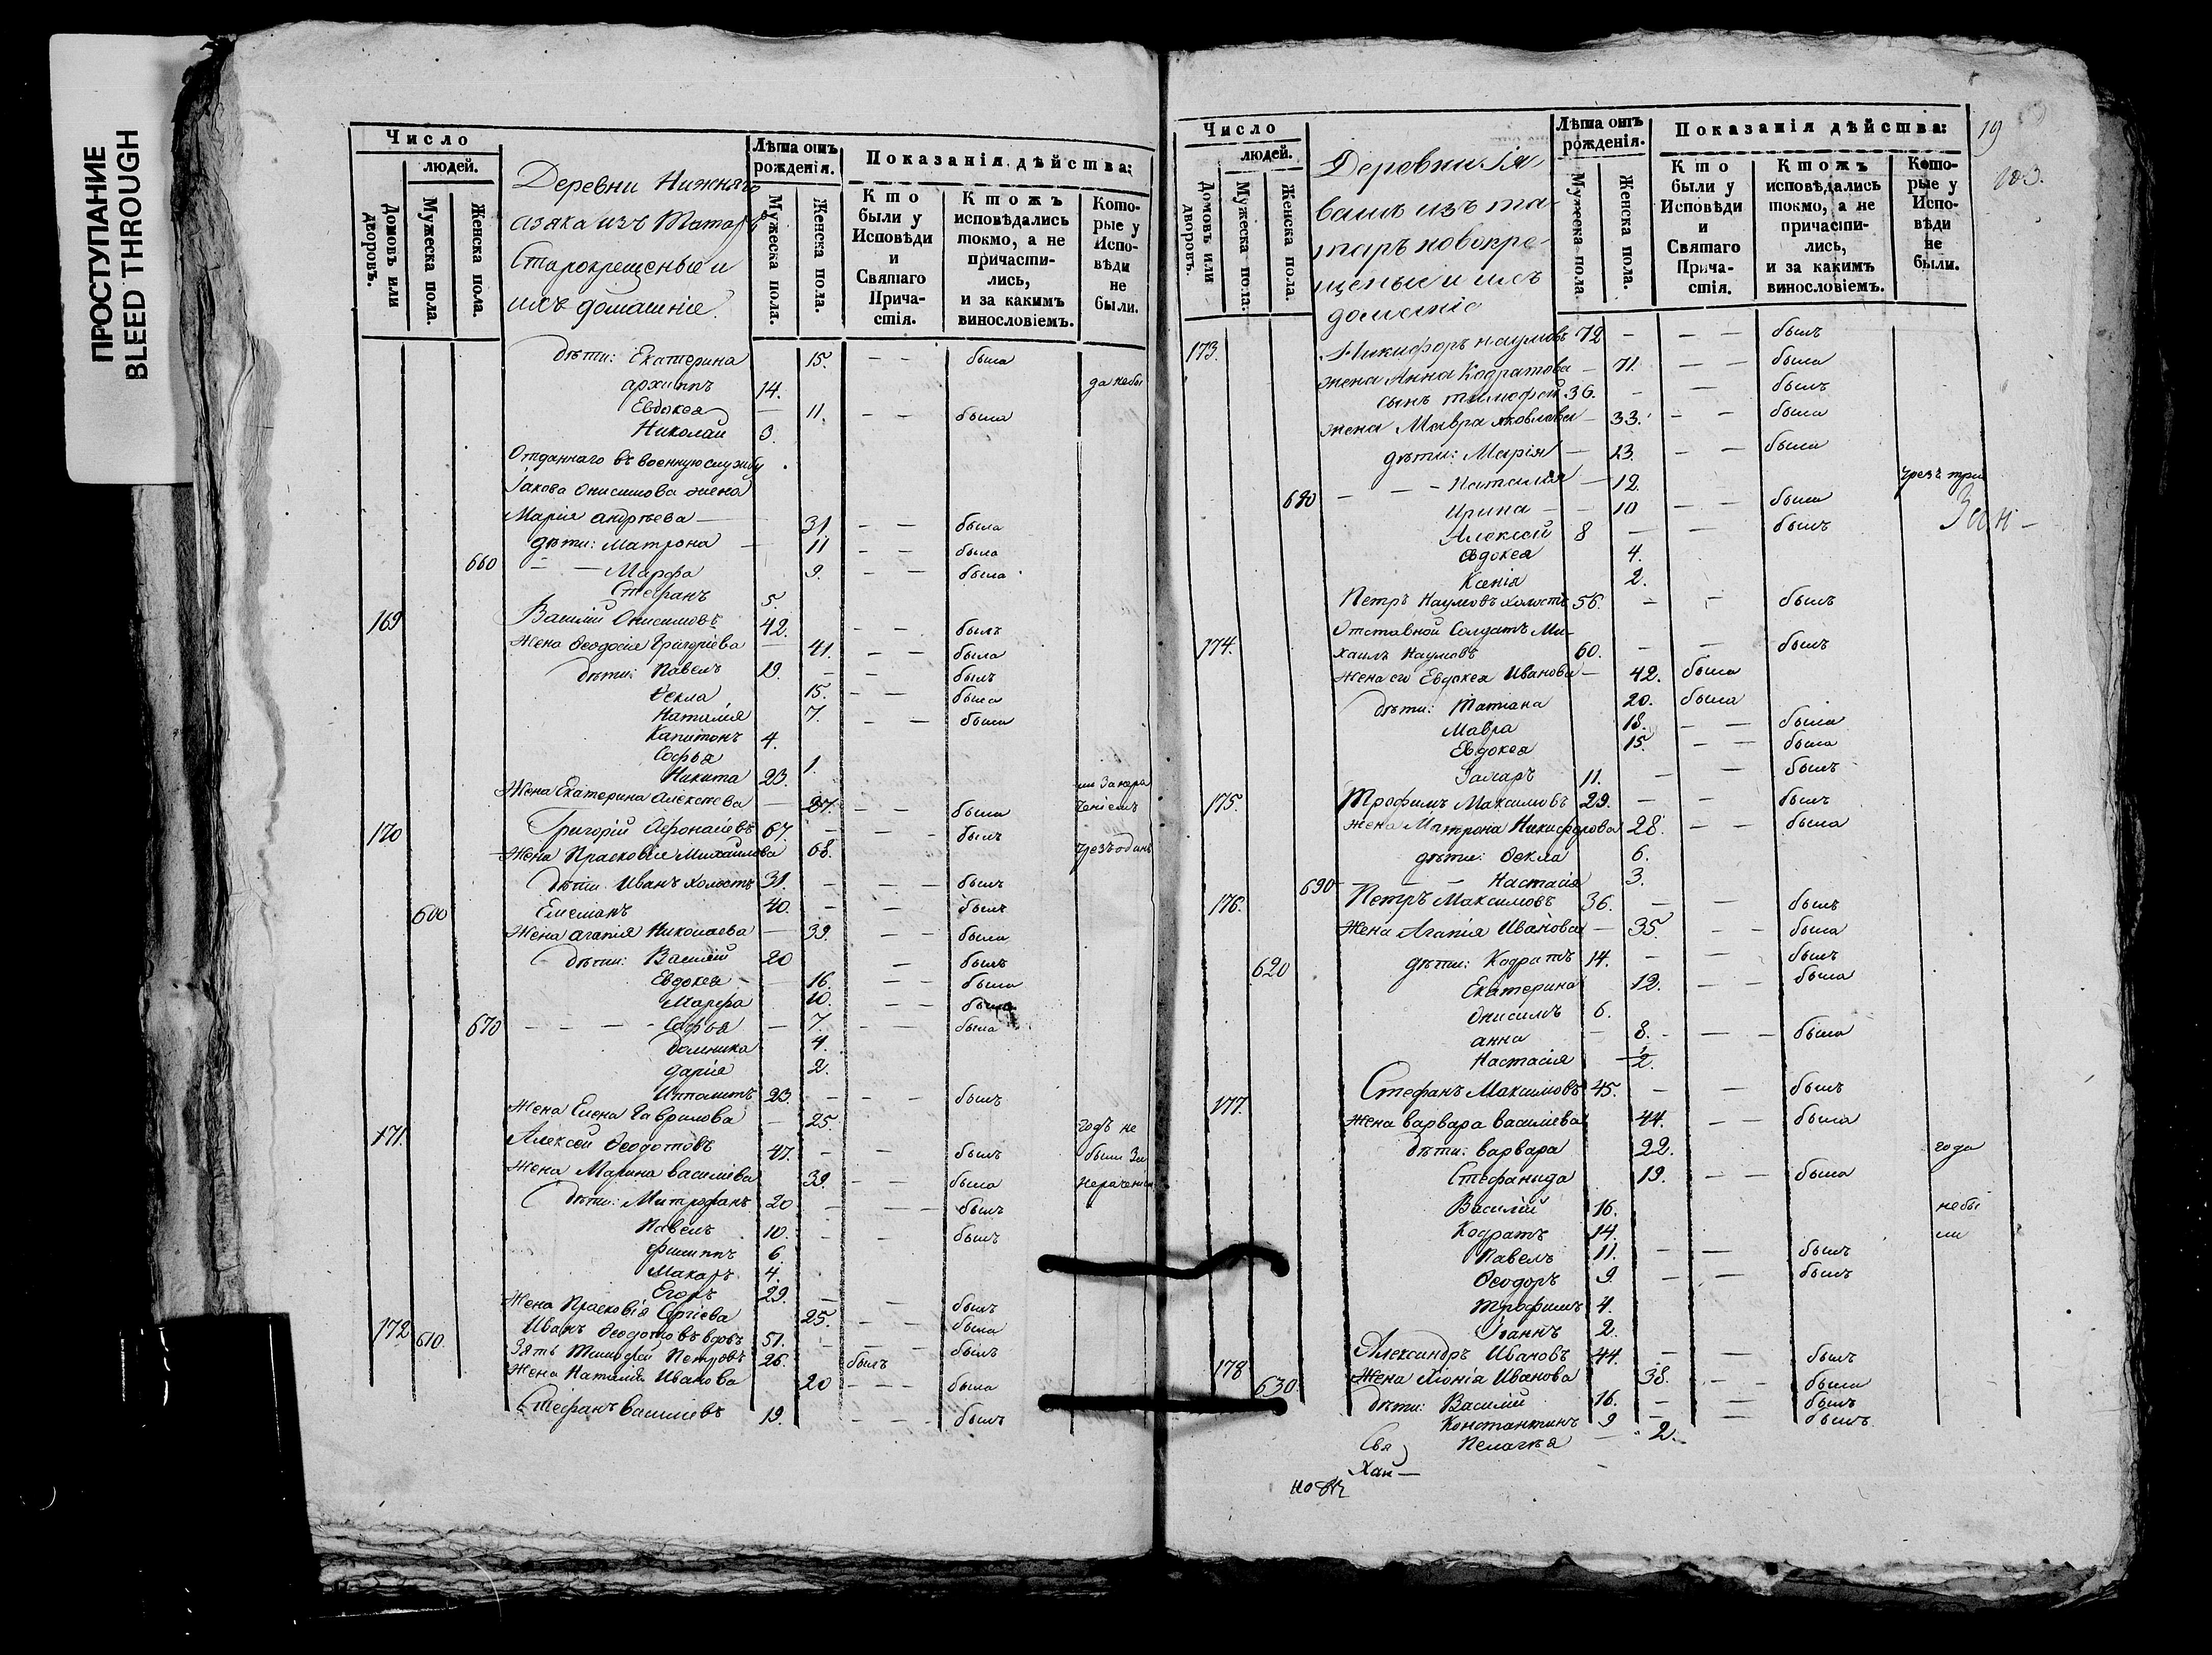 ПРОСТУПАНИЕ
BLEED THROUGH
Число
людей.
Домовъ или дворовъ.
Мужеска пола.
Женска пола.
Деревни Нижняго
азяка изъ Татаръ
Старокрещеные и
ихъ домашніе.
Лѣта отъ рожденія.
Мужеска пола.
Женска пола.
Показанія дѣйства:
Кто были у Исповѣди и Святаго Причастія.
Ктожъ исповѣдались токмо, а не причастились, и за какимъ винословіемъ.
Которые у Исповѣди не были.
дѣти: Екатерина 15. — — была
архиппъ 14. да небы
Евдокея — 11. — — была
Николай 3.
Отданнаго въ военную службу
Іакова Онисимова жена
Марія андрѣева — 31. — — была
дѣти: Матрона — 11 — — была
660 — — Марфа 9. — — была
Стефанъ 5.
169 Василій Онисимовъ 42. — — былъ
Жена Ѳеодосія Григоріева — 41. — — была
дѣти: Павелъ 19. — — былъ
Ѳекла 15. — — была
Наталія 7. — — была
Капитонъ 4.
Софья 1.
Никита 23. ли за нера
Жена Екатерина Алексѣева — 27. — — была ченіемъ
170 Григорій Афонасіевъ 67. — — — былъ
Жена Прасковія Михаилова 68. чрезъ одинъ
дѣти Иванъ холостъ 31. — — — былъ
600 Емеліанъ 40. — — былъ
Жена агапія Николаева — 39. — — была
дѣти: Василій 20 — былъ
Евдокея — 16. — — была
Марфа 10. — — была
670 — — — Софья — 7. — — была
Домника 4.
дарія 2.
Ипполитъ 23 — — — былъ
Жена Елена Гаврилова — 25. годъ не
171. Алексѣй Ѳеодотовъ 47. — — былъ были За
Жена Марина василіева 39. — — была нерачені
дѣти: Митрофанъ 20 — — — былъ
Павелъ 10. — — былъ
филиппъ 6
Макаръ 4.
Егоръ 29. — — былъ
Жена Прасковія Сергіева 25. — была
172 610. Иванъ Ѳеодотовъ вдовъ 51. — — — былъ
Зять Тимофей Петровъ 26. былъ
Жена Наталія Иванова 20 — — — была
Стефанъ Василіевъ 19. — — — былъ
Число
людей.
Домовъ или дворовъ.
Мужеска пола.
Женска пола.
Деревни Ія
вашъ изъ та-
таръ новокре-
щеные и ихъ
домашніе
Лѣта отъ рожденія.
Мужеска пола.
Женска пола.
Показанія дѣйства:
Кто были у Исповѣди и Святаго Причастія.
Ктожъ исповѣдались токмо, а не причастились, и за какимъ винословіемъ.
Которые у Исповѣди не были.
19
173. Никифоръ наумовъ 72 — — — былъ
жена Анна Кодратова — 71. — — была
сынъ тимофей 36. — — былъ
жена Мавра яковлева — 33. — — была
дѣти: Марія — 23. — — была
— — Наталія — 12. чрезъ три
680 Ирина — — 10 — — была
Алексѣй 8 — — былъ
Евдокея 4.
Ксенія 2.
Петръ Наумовъ холостъ 56. — — былъ
Отставной Солдатъ Ми-
174. хаилъ Наумовъ 60. — — былъ
Жена его Евдокея Иванова — 42. была
дѣти: Татіана 20. была
Мавра 18. — — была
Евдокея 15. — — была
Захаръ 11. — — былъ
175. Трофимъ Максимовъ 29. — — былъ
Жена Матрона Никифорова 28. — — была
дѣти: Ѳекла 6.
690 — — — Настасія 3.
176. Петръ Максимовъ 36. — — былъ
Жена Агапія Иванова — 35. — — была
620 дѣти: Кодратъ 14. — — былъ
Екатерина 12. — — была
Онисимъ 6.
анна — 8. — — — была
Настасія — 2.
177. Стефанъ Максимовъ 45. — — былъ
Жена варвара василіева 44. — — была
дѣти: варвара 22. года
Стефанида 19. — — была
Василій 16. небы
Кодратъ 14. ли
Павелъ 11. — — былъ
Ѳеодоръ 9. — — былъ
Трофимъ 4.
Іоаннъ 2.
178 Александръ Ивановъ 44. — — былъ
630. Жена Хіонія Иванова 38. — — была
дѣти: Василій 16. — — былъ
Константинъ 9 — — былъ
Пелагѣя — 2.
Свя
Хан —